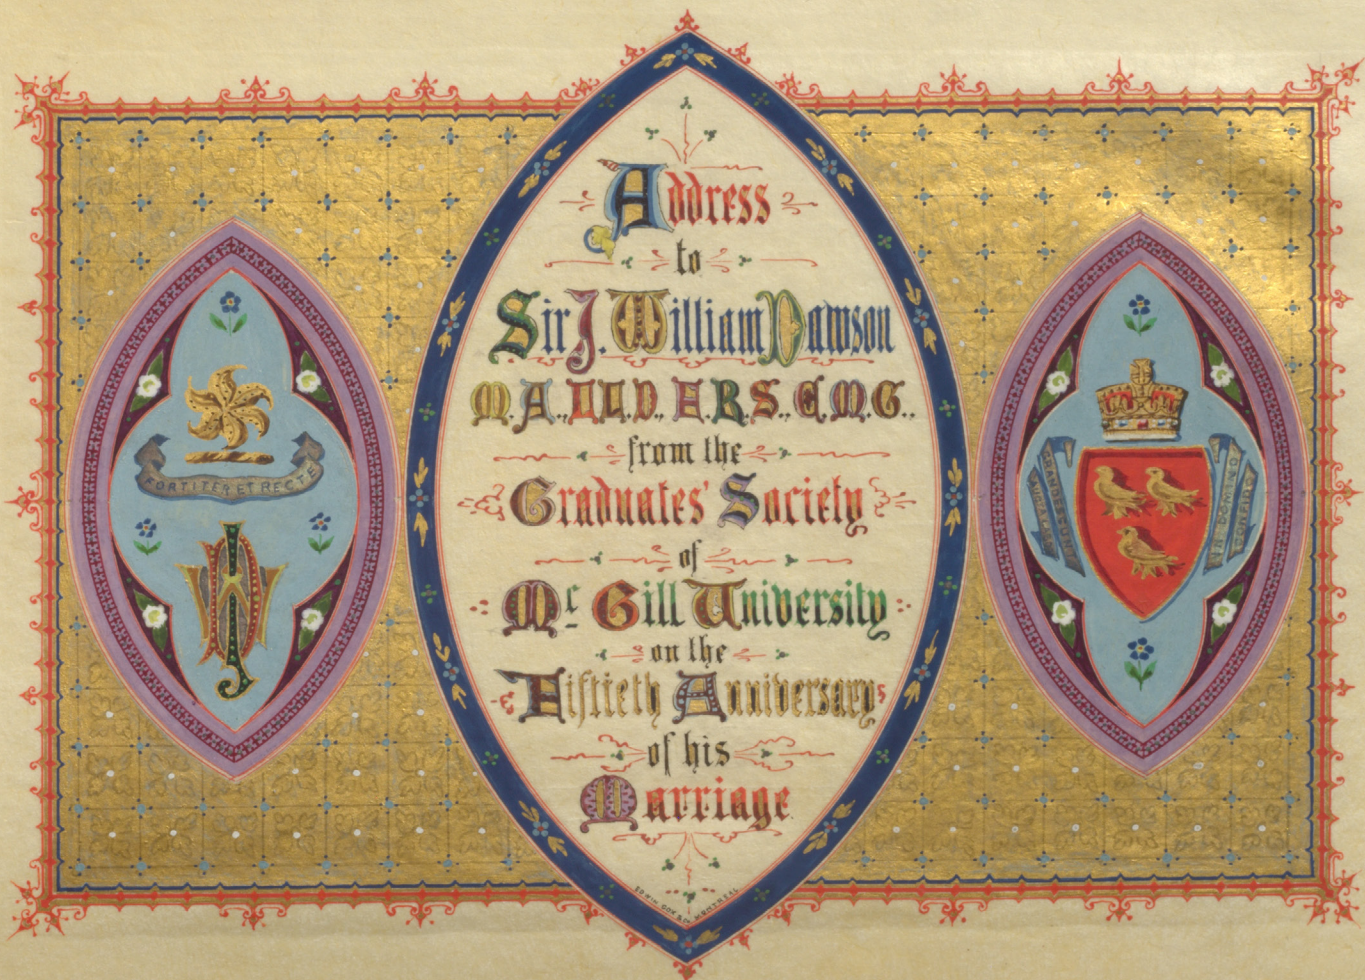 Address
to
Sir J. William Dawson
M.A., LL.D., F.R.S., C.M.G.,
from the
Graduates' Society
of
McGill University
on the
Fiftieth Anniversary
of his
Marriage.
EDWIN COX MONTREAL
FORTITER ET RECTE
GRANDESCUNT
AUCTA LABORE
IN DOMINO
CONFIDO